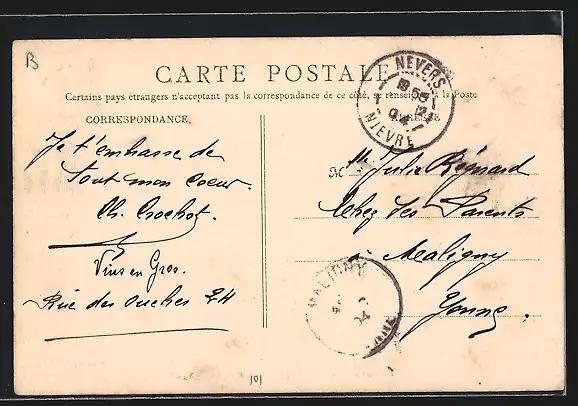 B
CARTE POSTALE
Certains pays étrangers n'acceptant pas la correspondance de ce côté, se renseigner à la Poste
CORRESPONDANCE
ADRESSE
NEVERS
NIEVRE
Je t'embrasse de
tout mon coeur.
Ch. Crochot.
Vins en Gros.
Rue des Ouches 24
Mlle Julia Régnard
Chez ses Parents
à Maligny
Yonne.
MALIGNY
04
101